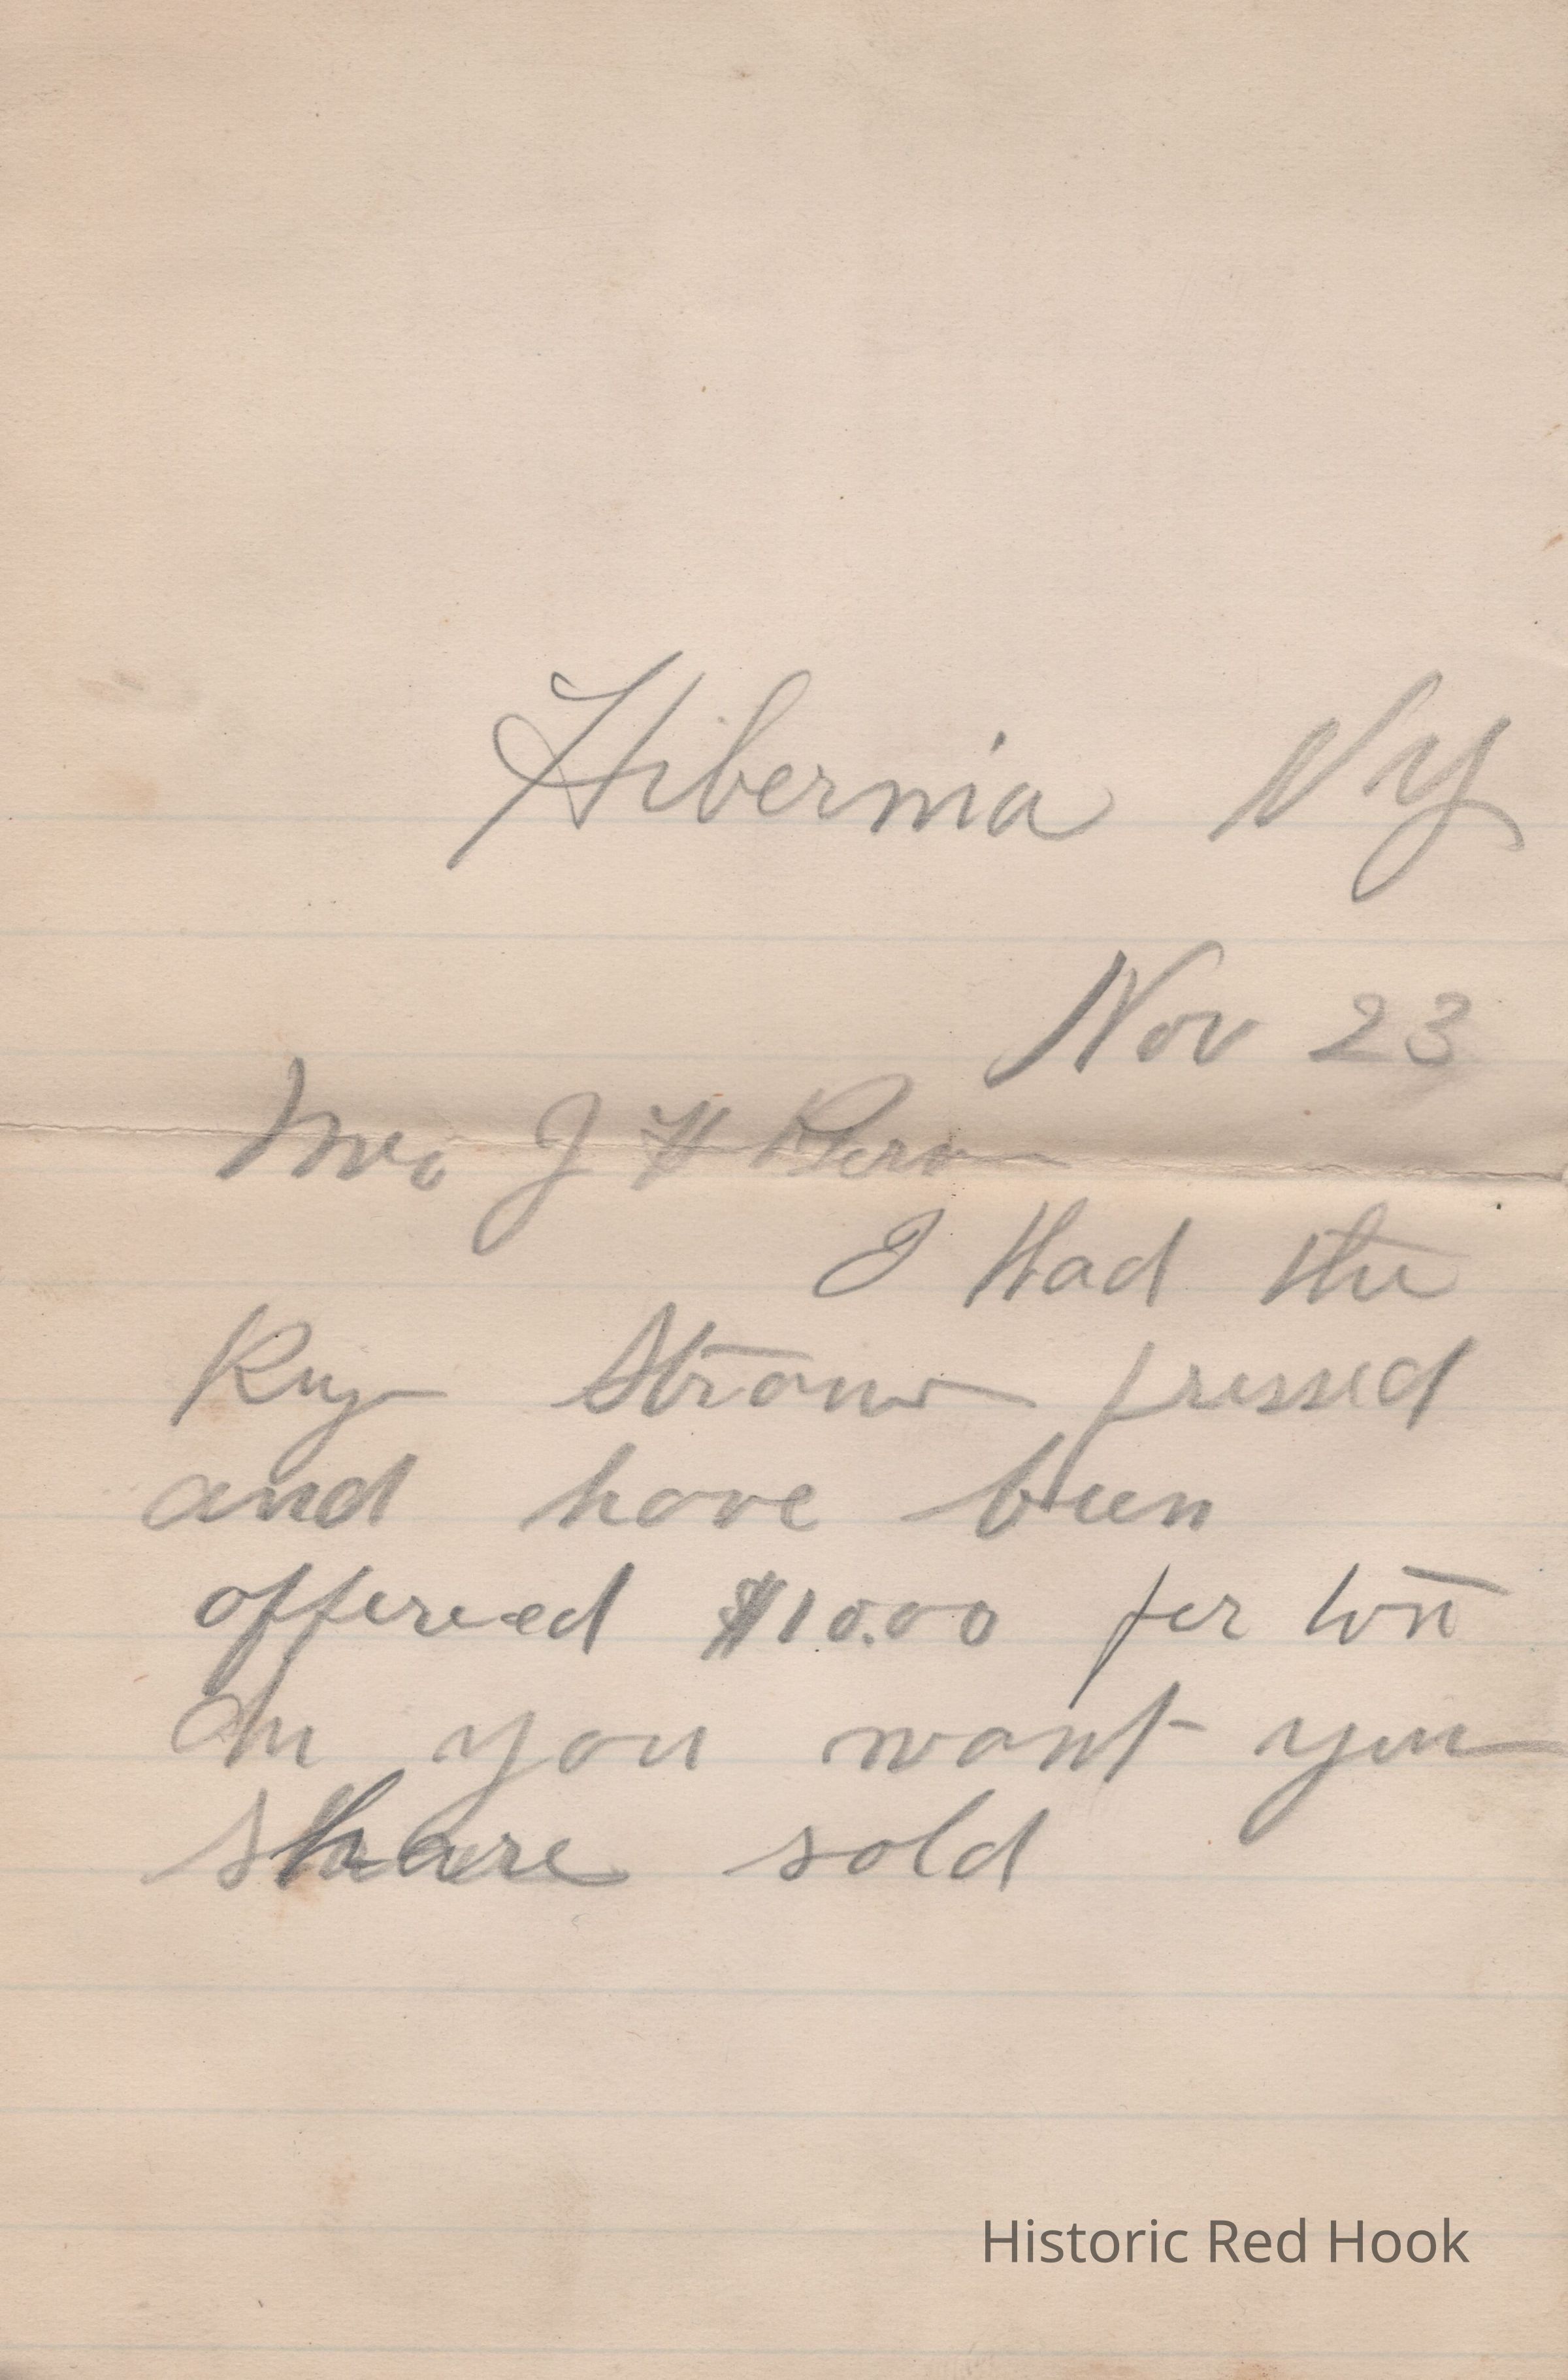 Hibernia NY
Nov 23
Mrs J H
I Had the
Rye Straw pressed
and have been
offereed $10.00 per ton
do you want you
share sold
Historic Red Hook